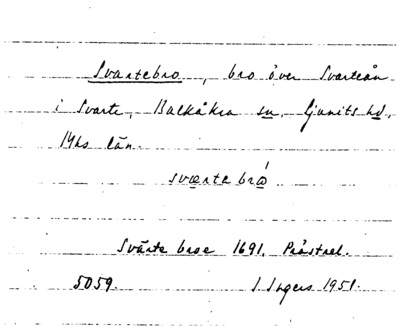 Svartebro, bro över Svarteån
i Svarte, Balkåkra sn, Ljunits hd,
Mhs län.
svartebrá
Svarte broe 1691. Prästrel.
5059. I. Ingers 1951.